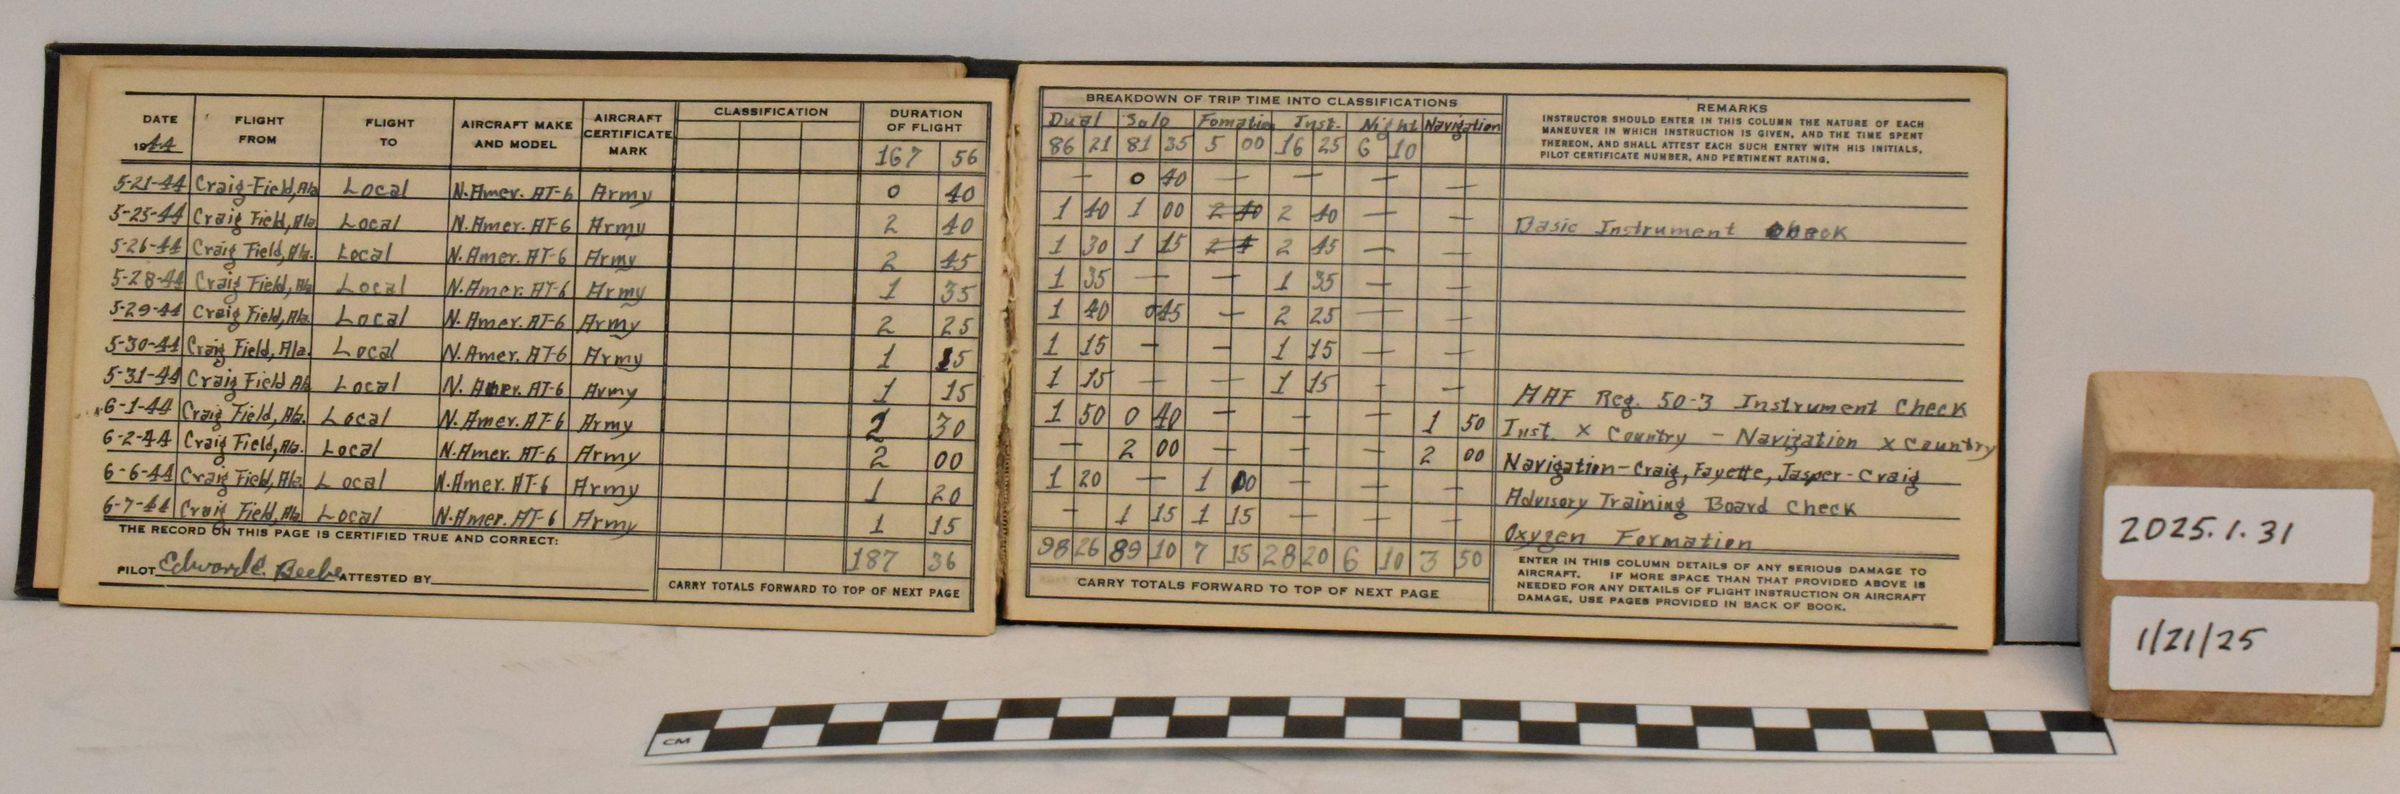 DATE FLIGHT FROM FLIGHT TO AIRCRAFT MAKE AND MODEL AIRCRAFT CERTIFICATE MARK CLASSIFICATION DURATION OF FLIGHT
1944 167 56
5-21-44 Craig-Field, Ala Local N. Amer. AT-6 Army 0 40
5-25-44 Craig Field, Ala Local N. Amer. AT-6 Army 2 40
5-26-44 Craig Field, Ala. Local N. Amer. AT-6 Army 2 45
5-28-44 Craig Field, Ala Local N. Amer. AT-6 Army 1 35
5-29-44 Craig Field, Ala. Local N. Amer. AT-6 Army 2 25
5-30-44 Craig Field, Ala. Local N. Amer. AT-6 Army 1 15
5-31-44 Craig Field Ala Local N. Amer. AT-6 Army 1 15
6-1-44 Craig Field, Ala. Local N. Amer. AT-6 Army 2 30
6-2-44 Craig Field, Ala. Local N. Amer. AT-6 Army 2 00
6-6-44 Craig Field, Ala Local N. Amer. AT-6 Army 1 20
6-7-44 Craig Field, Ala Local N. Amer. AT-6 Army 1 15
THE RECORD ON THIS PAGE IS CERTIFIED TRUE AND CORRECT:
187 36
PILOT Edward E. Beebe ATTESTED BY
CARRY TOTALS FORWARD TO TOP OF NEXT PAGE
BREAKDOWN OF TRIP TIME INTO CLASSIFICATIONS
Dual Solo Fomation Inst. Night Navigation
86 21 81 35 5 00 16 25 6 10
— 0 40 — — — —
1 40 1 00 2 40 2 40 — —
1 30 1 15 2 4 2 45 — —
1 35 — — 1 35 — —
1 40 0 45 — 2 25 — —
1 15 — — 1 15 — —
1 15 — — 1 15 - —
1 50 0 40 — — — 1 50
— 2 00 — — — 2 00
1 20 — 1 00 — — —
- 1 15 1 15 — — —
98 26 89 10 7 15 28 20 6 10 3 50
CARRY TOTALS FORWARD TO TOP OF NEXT PAGE
REMARKS
INSTRUCTOR SHOULD ENTER IN THIS COLUMN THE NATURE OF EACH
MANEUVER IN WHICH INSTRUCTION IS GIVEN, AND THE TIME SPENT
THEREON, AND SHALL ATTEST EACH SUCH ENTRY WITH HIS INITIALS,
PILOT CERTIFICATE NUMBER, AND PERTINENT RATING.
Basic Instrument check
AAF Reg. 50-3 Instrument Check
Inst. X Country - Navigation X Country
Navigation-Craig, Fayette, Jasper-Craig
Advisory Training Board Check
Oxygen Formation
ENTER IN THIS COLUMN DETAILS OF ANY SERIOUS DAMAGE TO
AIRCRAFT. IF MORE SPACE THAN THAT PROVIDED ABOVE IS
NEEDED FOR ANY DETAILS OF FLIGHT INSTRUCTION OR AIRCRAFT
DAMAGE, USE PAGES PROVIDED IN BACK OF BOOK.
2025.1.31
1/21/25
CM